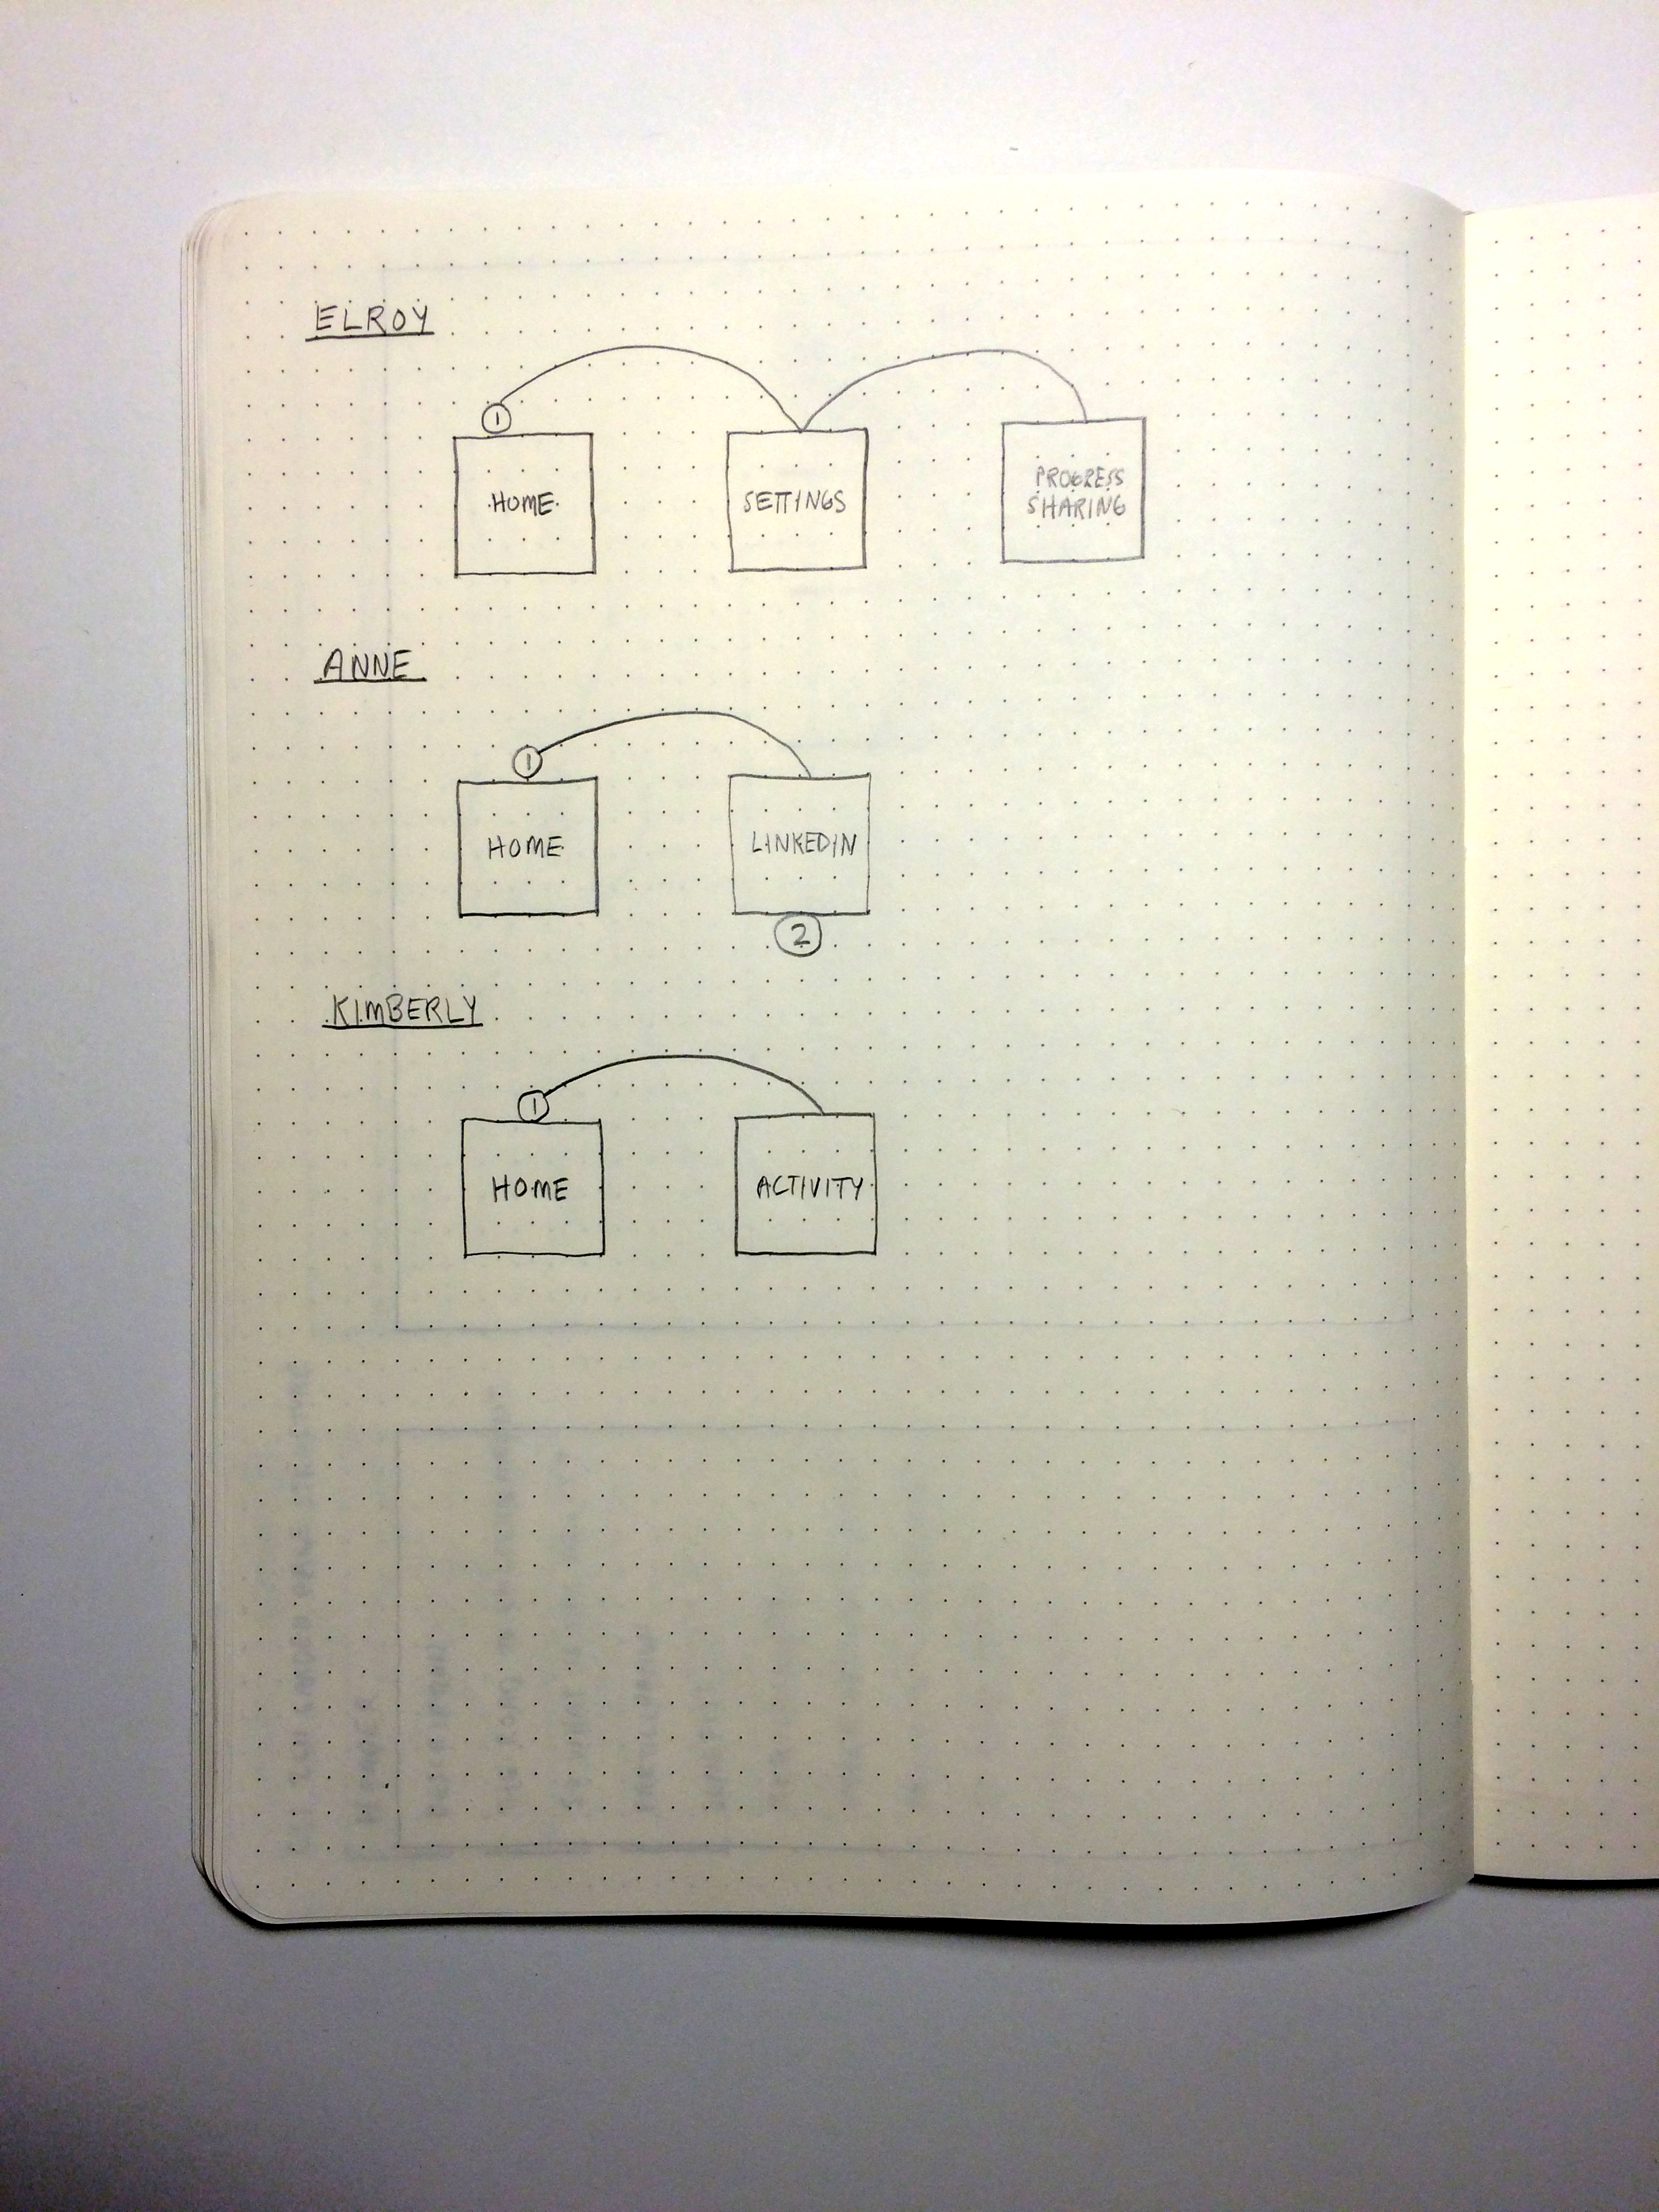 ELROY
1
HOME
SETTINGS
PROGRESS
SHARING
ANNE
1
HOME
LINKEDIN
2
KIMBERLY
1
HOME
ACTIVITY